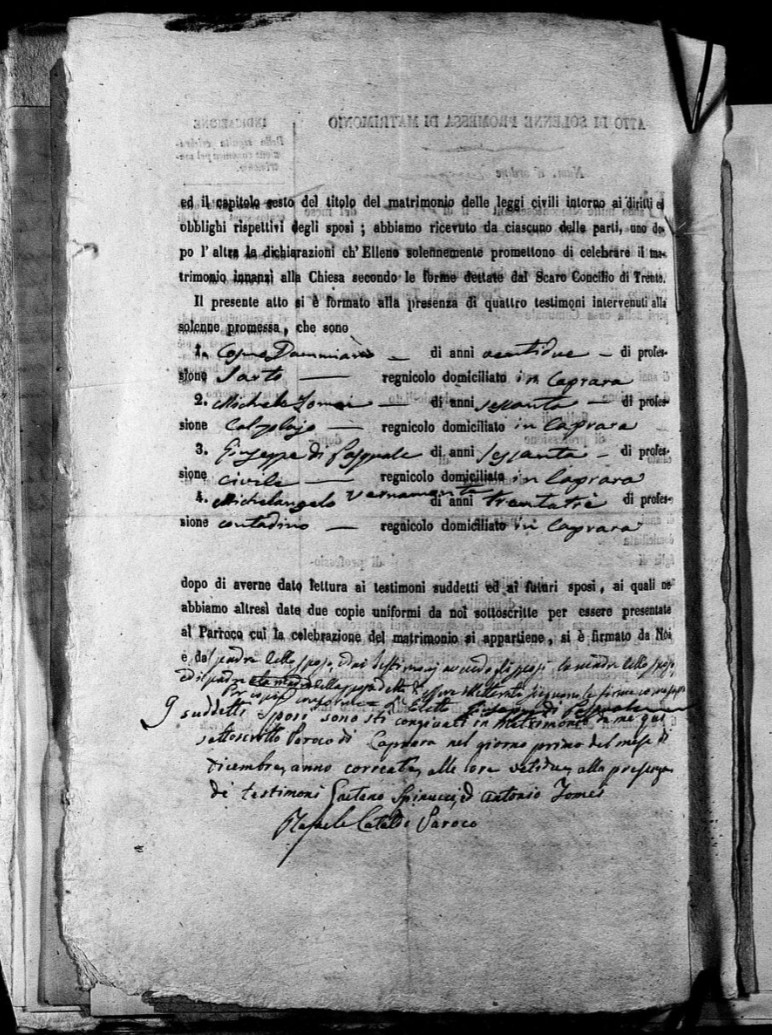 ed il capitolo sesto del titolo del matrimonio delle leggi civili intorno ai diritti ed
obblighi rispettivi degli sposi ; abbiamo ricevuto da ciascuno delle parti, uno do-
po l'altra la dichiarazioni ch'Elleno solennemente promettono di celebrare il ma-
trimonio innanzi alla Chiesa secondo le forme dettate dal Scaro Concilio di Trento.
Il presente atto si è formato alla presenza di quattro testimoni intervenuti alla
solenne promessa, che sono
1. Cosma Dammiano di anni di profes-
sione Sarto regnicolo domiciliato in Caprara
2. Michele Tomei di anni sessanta di profes-
sione Calzolajo regnicolo domiciliato in Caprara
3. Giuseppe di Pasquale di anni sessanta di profes-
sione civile regnicolo domiciliato in Caprara
4. Michelangelo Vernamonte di anni trentatrè di profes-
sione contadino regnicolo domiciliato in Caprara
dopo di averne dato lettura ai testimoni suddetti ed ai futuri sposi, ai quali ne
abbiamo altresì date due copie uniformi da noi sottoscritte per essere presentate
al Parroco cui la celebrazione del matrimonio si appartiene, si è firmato da Noi
e da' padre dello sposo, e dai testimonj avendo gli sposi la madre dello sposo
ed il padre della sposa detto di essere
Per copia conforme Giuseppe di Pasquale
suddetti sposi sono sti congiunti in Matrimonio da me qui
sottoscritto Paroco di Caprara nel giorno primo del mese di
Dicembre, anno corrente, alle ore alla presenza
de' testimoni Gaetano Spinucci, ed Antonio Tomei
Rafaele Cataldi Paroco